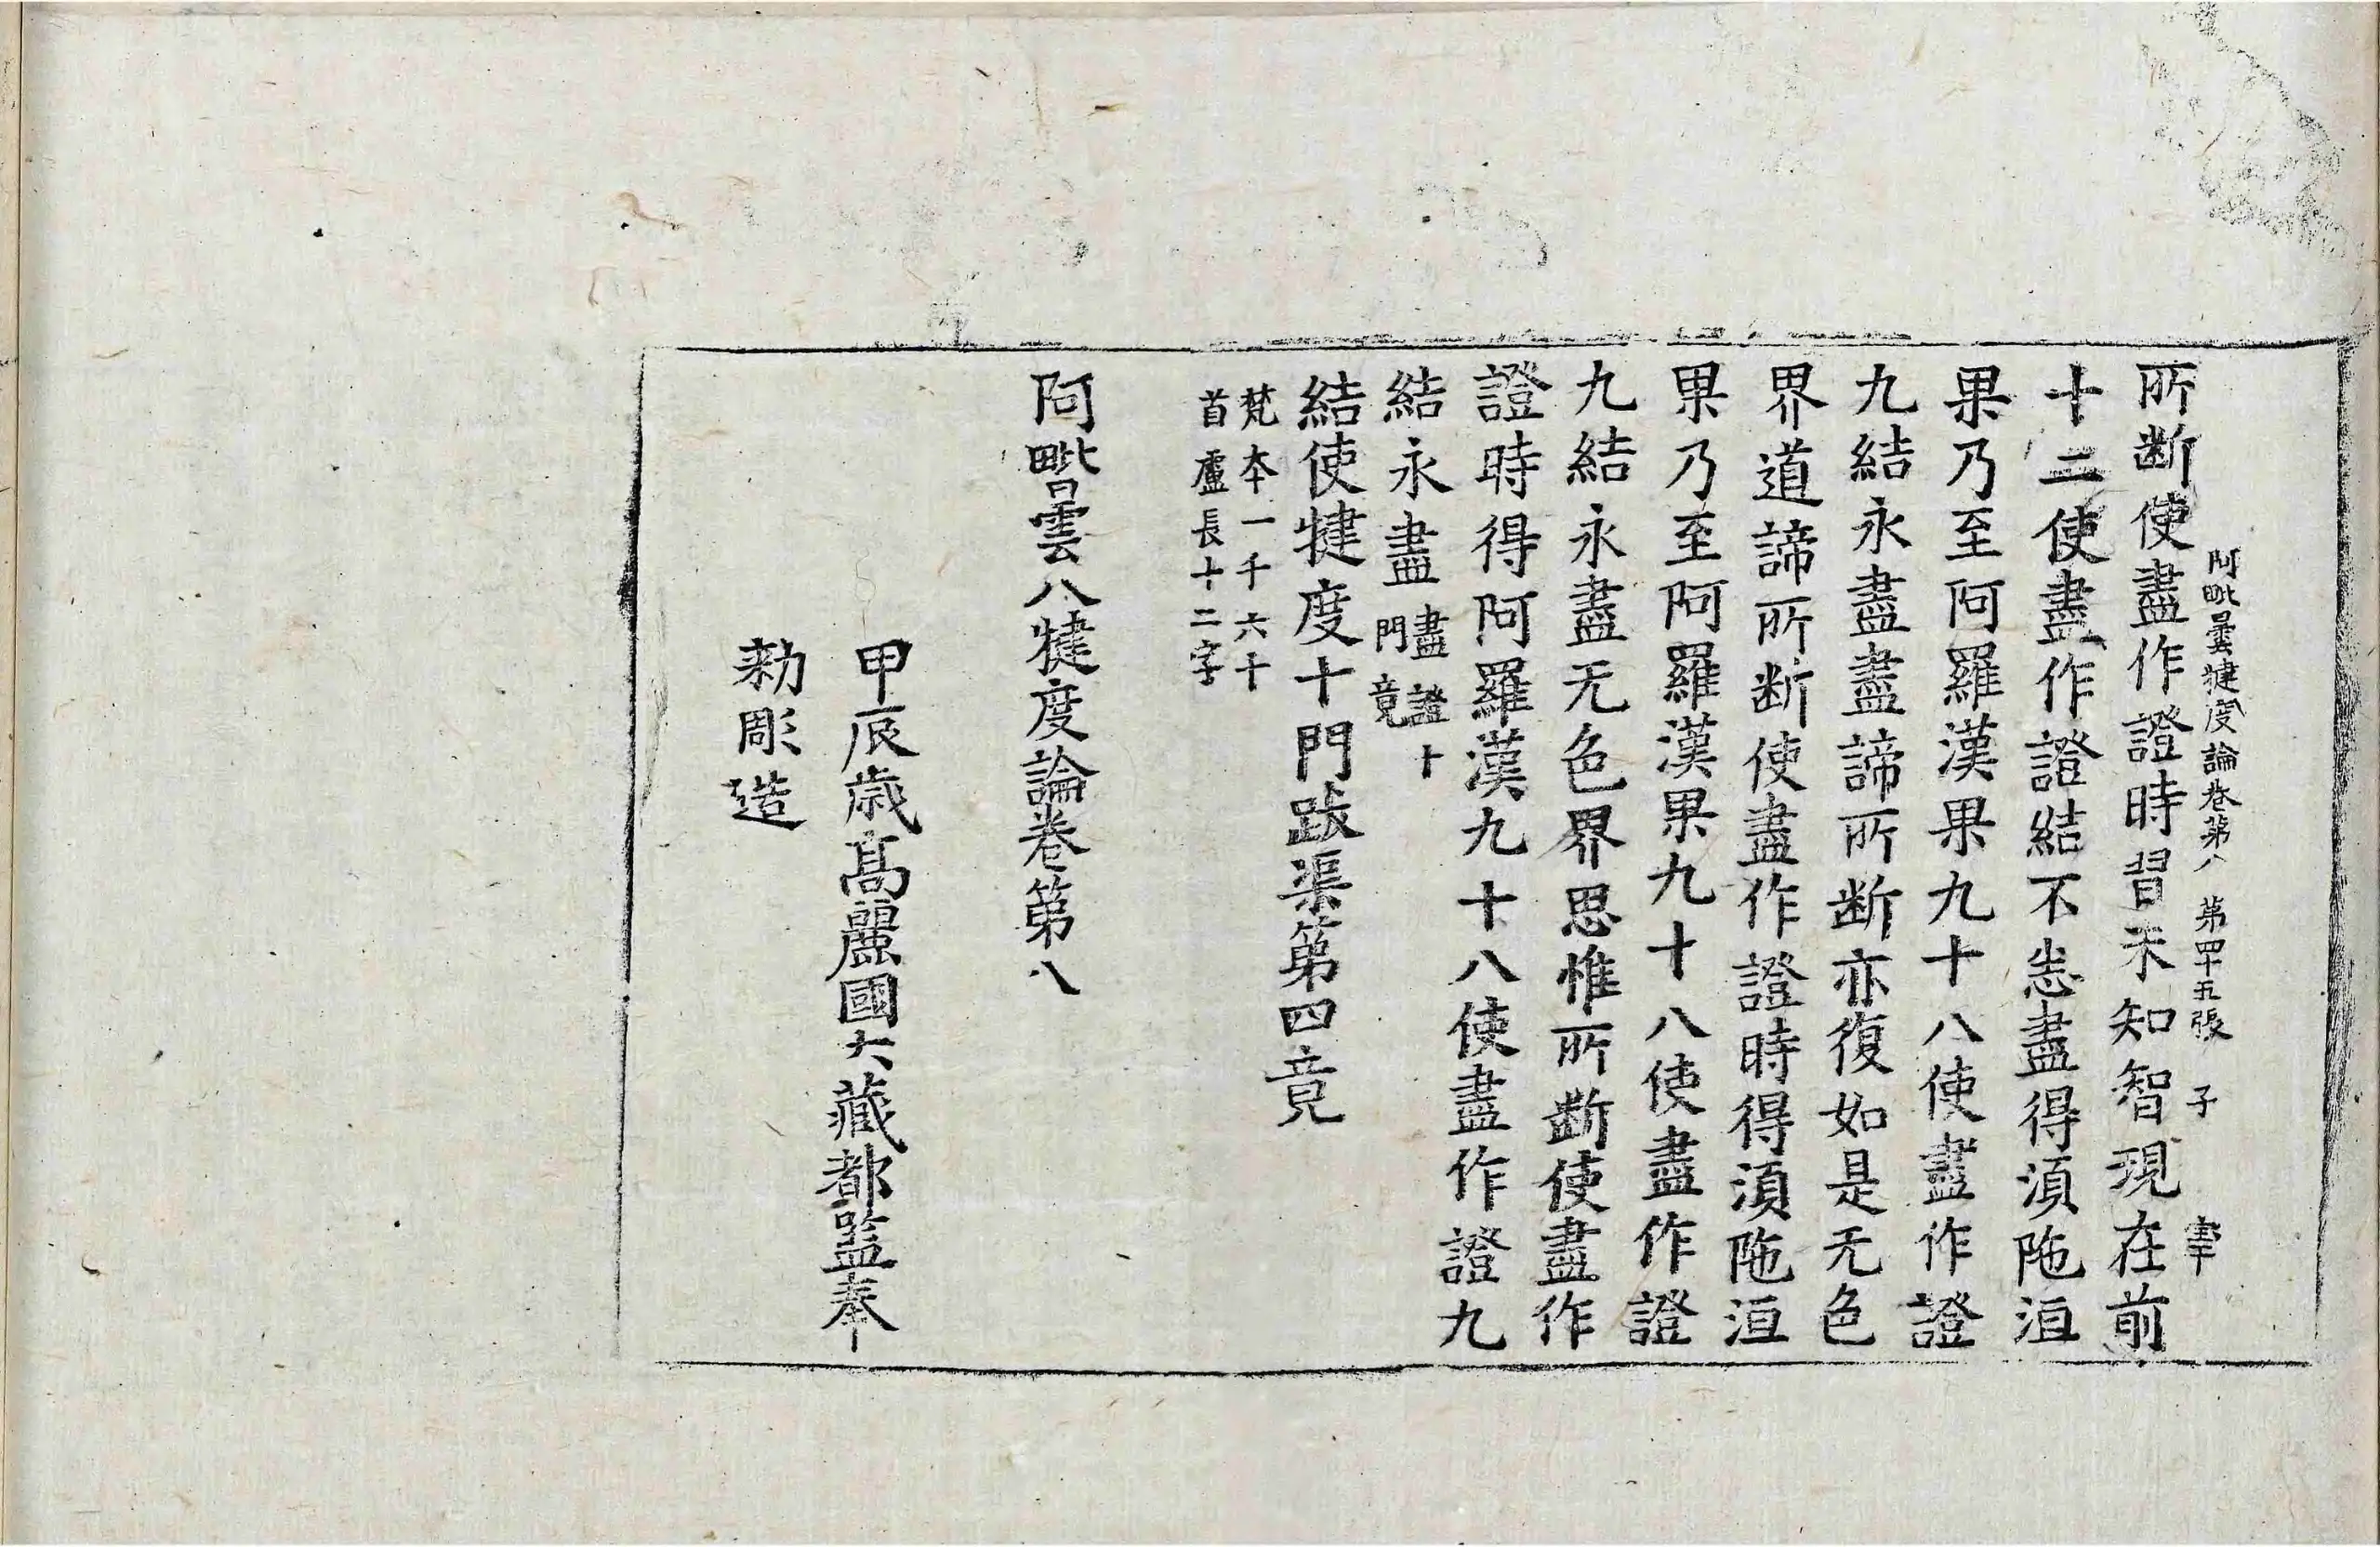 阿毗曇八犍度論卷第八 第四十五張 子
所断使盡作證時習未知智現在前
十二使盡作證結不悉盡得湏陁洹
果乃至阿羅漢果九十八使盡作證
九結永盡盡諦所断亦復如是无色
界道諦所断使盡作證時得湏陁洹
果乃至阿羅漢果九十八使盡作證
九結永盡无色界思惟所断使盡作
證時得阿羅漢九十八使盡作證九
結永盡 盡證十
門竟
結使犍度十門跋渠第四竟
梵本一千六十
首盧長十二字
阿毗曇八犍度論卷第八
甲辰歲高麗國大藏都監奉
勑彫造